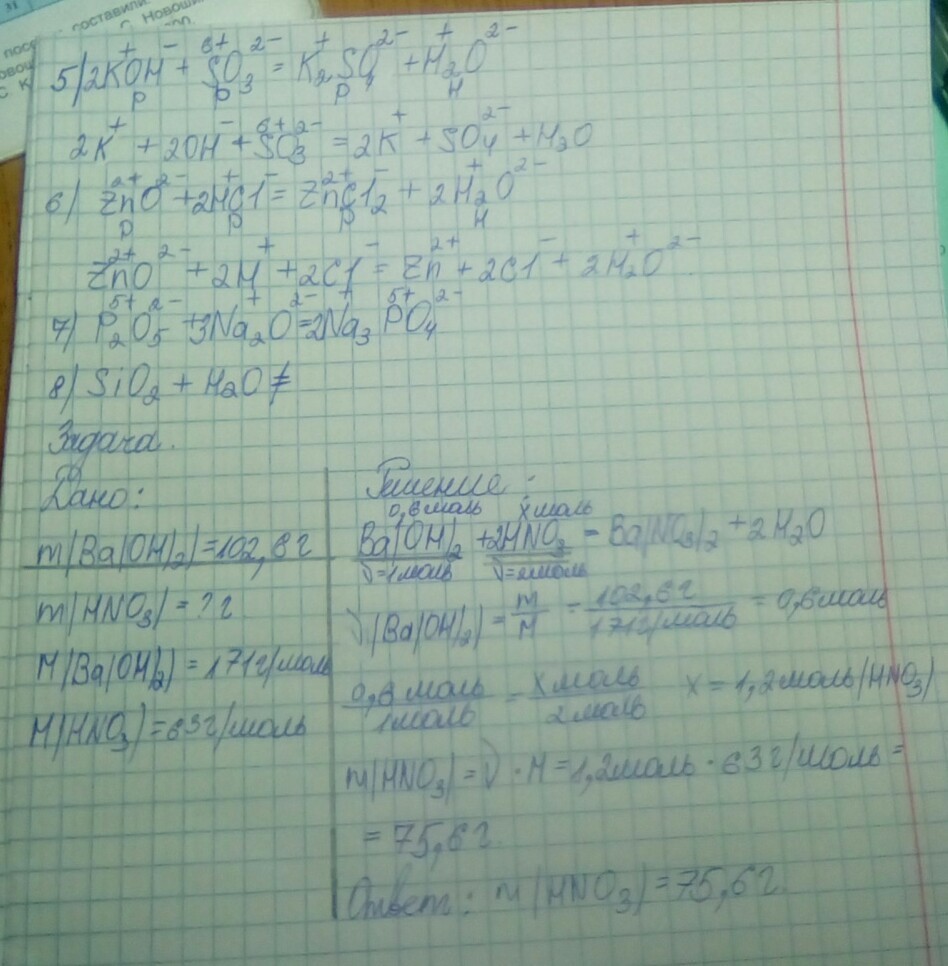 посе
составили
С. Новоши
5) 2KOH + SO₃ = K₂SO₄ + H₂O
2K⁺ + 2OH⁻ + SO₃ = 2K⁺ + SO₄²⁻ + H₂O
6) ZnO + 2HCl = ZnCl₂ + 2H₂O
ZnO + 2H⁺ + 2Cl⁻ = Zn²⁺ + 2Cl⁻ + 2H₂O
7) P₂O₅ + 3Na₂O = 2Na₃PO₄
8) SiO₂ + H₂O ≠
Задача.
Дано:
m(Ba(OH)₂) = 102,6 г
m(HNO₃) = ? г
M(Ba(OH)₂) = 171 г/моль
M(HNO₃) = 63 г/моль
Решение:
0,6 моль x моль
Ba(OH)₂ + 2HNO₃ = Ba(NO₃)₂ + 2H₂O
ν=1моль ν=2моль
ν(Ba(OH)₂) = m/M = 102,6 г/171 г/моль = 0,6 моль
0,6 моль/1 моль = x моль/2 моль x = 1,2 моль (HNO₃)
m(HNO₃) = ν · M = 1,2 моль · 63 г/моль =
= 75,6 г.
Ответ: m(HNO₃) = 75,6 г.